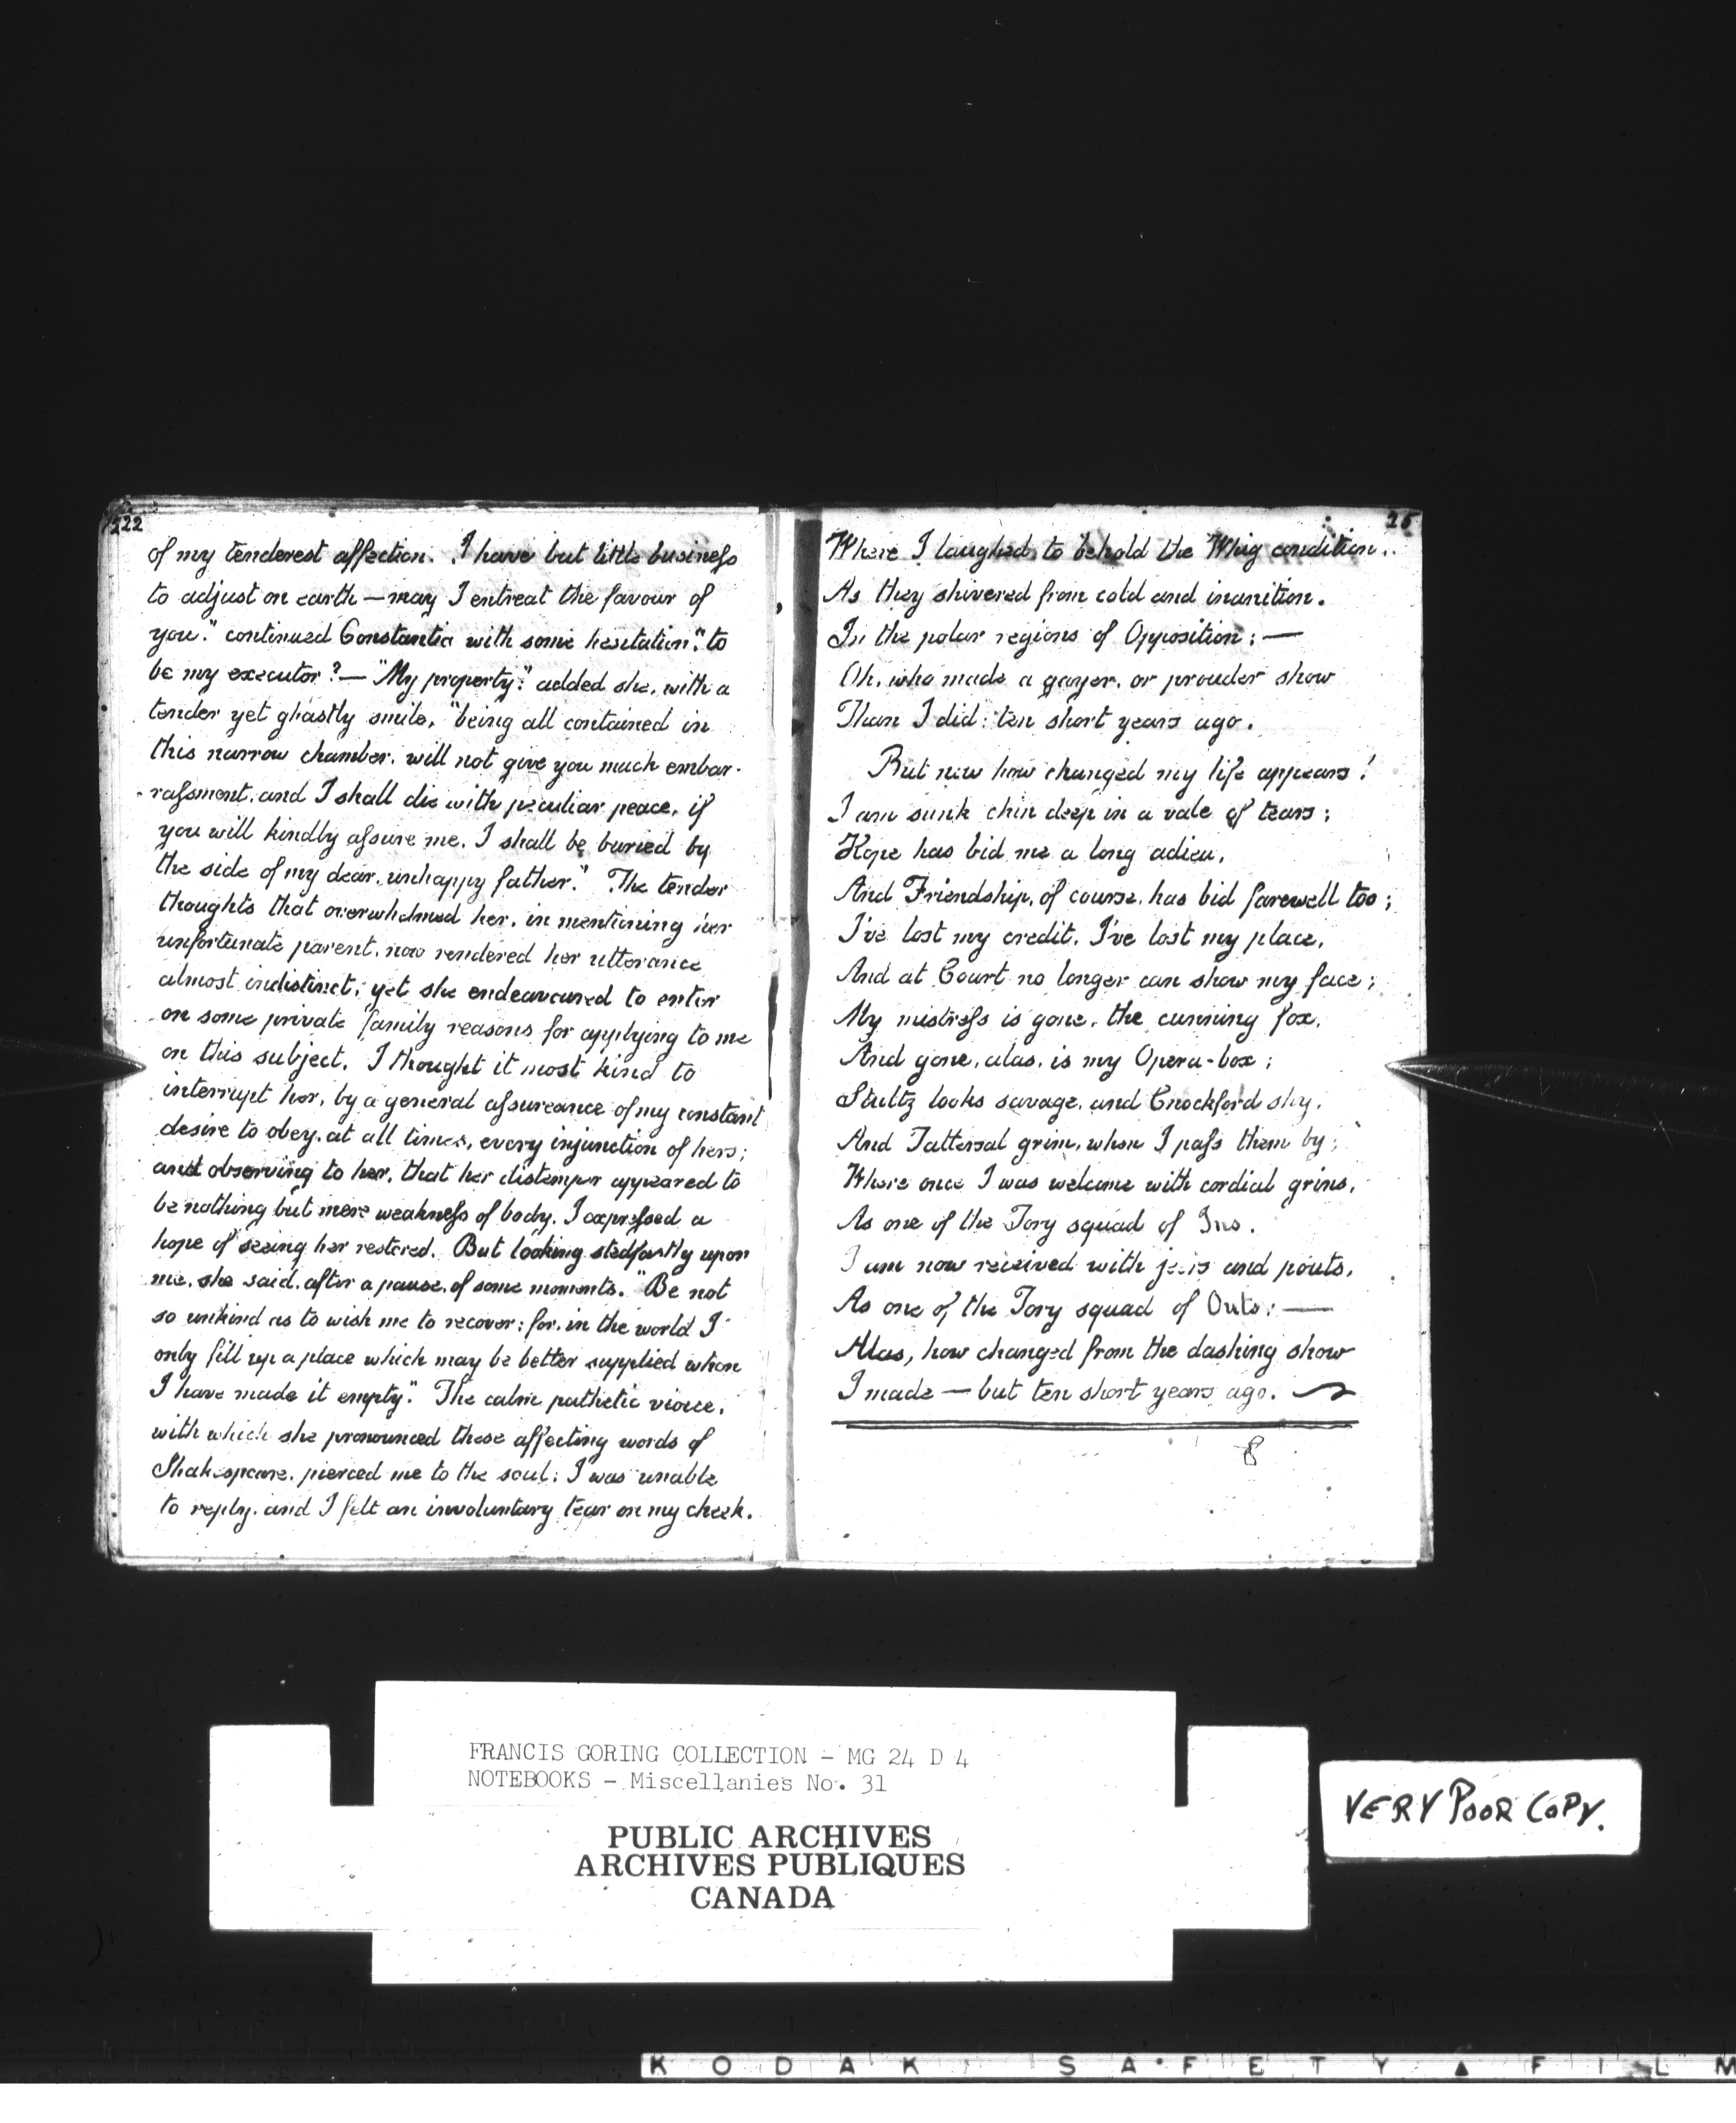 222
of my tenderest affection. I have but little business
to adjust on earth — may I entreat the favour of
you." continued Constantia with some hesitation." to
be my executor? — "My property." added she, with a
tender yet ghastly smile, "being all contained in
this narrow chamber, will not give you much embar-
-rassment, and I shall die with peculiar peace, if
you will kindly assure me, I shall be buried by
the side of my dear, unhappy father." The tender
thoughts that overwhelmed her, in mentioning her
unfortunate parent, now rendered her utterance
almost indistinct; yet she endeavoured to enter
on some private family reasons for applying to me
on this subject. I thought it most kind to
interrupt her, by a general assureance of my constant
desire to obey, at all times, every injunction of hers;
and observing to her, that her distemper appeared to
be nothing but mere weakness of body, I expressed a
hope of seeing her restored. But looking stedfastly upon
me, she said, after a pause, of some moments. "Be not
so unkind as to wish me to recover; for, in the world I
only fill up a place which may be better supplied when
I have made it empty." The calm pathetic vioice,
with which she pronounced these affecting words of
Shakespeare, pierced me to the soul; I was unable
to reply, and I felt an involuntary tear on my cheek.
25
Where I laughed, to behold the Whig condition.
As they shivered from cold and inanition.
In the polar regions of Opposition: —
Oh, who made a gayer, or prouder show
Than I did; ten short years ago.
But now how changed my life appears!
I am sunk chin deep in a vale of tears;
Hope has bid me a long adieu,
And Friendship, of course, has bid farewell too;
I've lost my credit, I've lost my place,
And at Court no longer can show my face;
My mistress is gone, the cunning fox,
And gone, alas, is my Opera-box;
Stultz looks savage, and Crockford shy,
And Tattersal grim, when I pass them by;
Where once I was welcome with cordial grins,
As one of the Tory squad of Ins.
I am now received with jeers and pouts,
As one of the Tory squad of Outs: —
Alas, how changed from the dashing show
I made — but ten short years ago.
FRANCIS GORING COLLECTION - MG 24 D 4
NOTEBOOKS - Miscellanies No. 31
PUBLIC ARCHIVES
ARCHIVES PUBLIQUES
CANADA
VERY POOR COPY.
KODAK SAFETY ▲ FILM